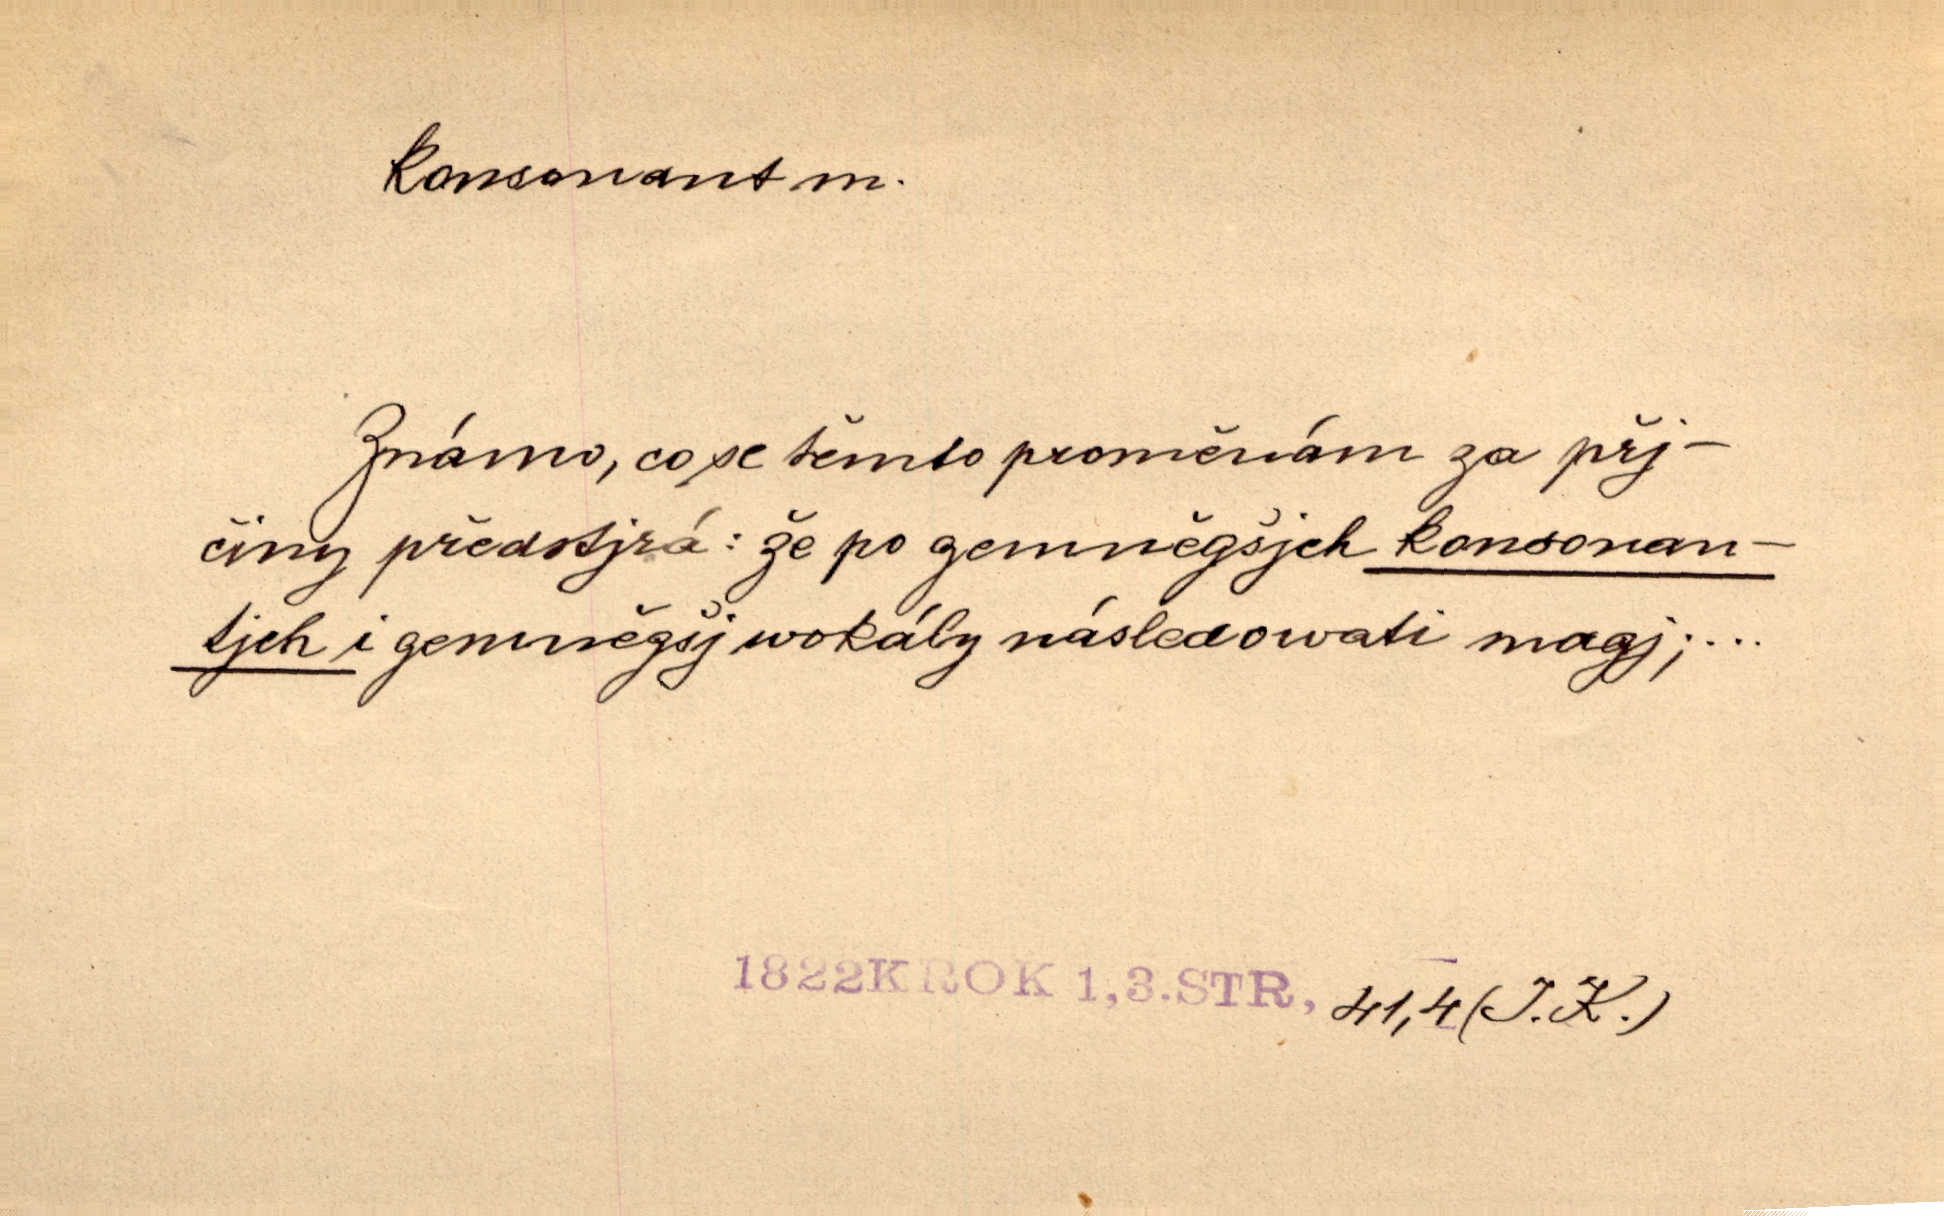 konsonant m.
Známo, co se těmto proměnám za přj-
činy předstjrá: že po gemněgšjch konsonan-
tjch i gemněgšj wokály následowati magj;...
1822 KROK 1,3.STR, 41,4 (J.K.)